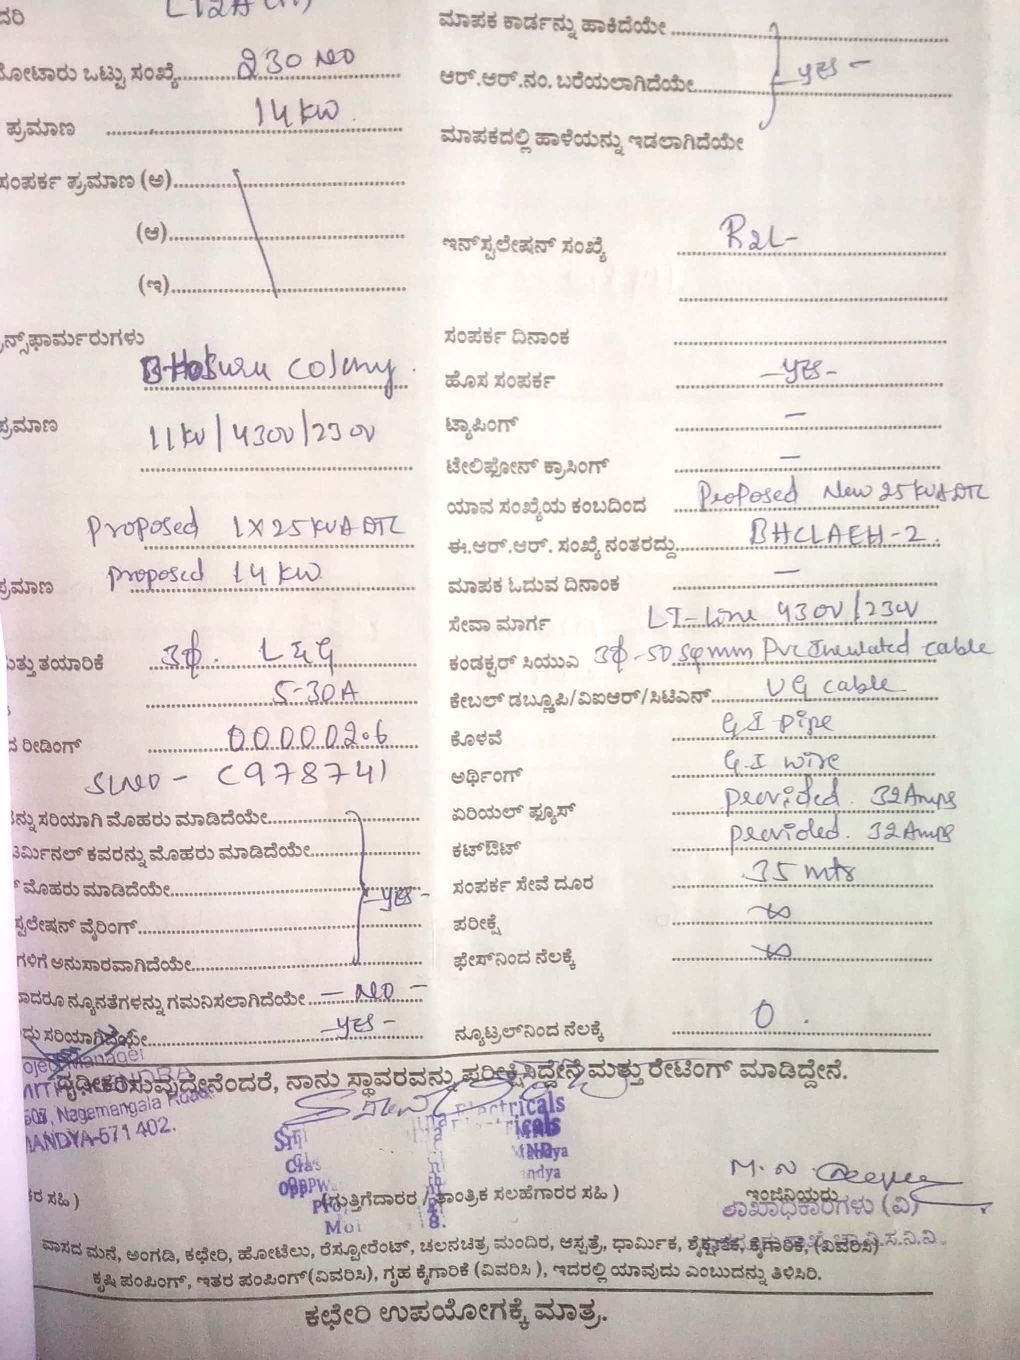 ದರಿ LT2A(ii)
ಒಟ್ಟು ಸಂಖ್ಯೆ 230 NO
ಪ್ರಮಾಣ 14 KW.
ಸಂಪರ್ಕ ಪ್ರಮಾಣ (ಅ)
(ಆ)
(ಇ)
ನ್ಸ್‌ಫಾರ್ಮರುಗಳು
Colony.
ಪ್ರಮಾಣ 11KV/430V/230V
Proposed 1X25 KVA DTC
ಪ್ರಮಾಣ Proposed 14 KW
ಮತ್ತು ತಯಾರಿಕೆ 3ϕ. L&G
5-30A
ರೀಡಿಂಗ್ 000002.6
SLNO - C978741
ನ್ನು ಸರಿಯಾಗಿ ಮೊಹರು ಮಾಡಿದೆಯೇ
ಟರ್ಮಿನಲ್ ಕವರನ್ನು ಮೊಹರು ಮಾಡಿದೆಯೇ
ಮೊಹರು ಮಾಡಿದೆಯೇ yes -
ಸ್ಟಲೇಷನ್ ವೈರಿಂಗ್
ಗಳಿಗೆ ಅನುಸಾರವಾಗಿದೆಯೇ
ಾದರೂ ನ್ಯೂನತೆಗಳನ್ನು ಗಮನಿಸಲಾಗಿದೆಯೇ - NO -
ದು ಸರಿಯಾಗಿದೆಯೇ - yes -
ಮಾಪಕ ಕಾರ್ಡನ್ನು ಹಾಕಿದೆಯೇ
ಆರ್.ಆರ್.ನಂ. ಬರೆಯಲಾಗಿದೆಯೇ yes -
ಮಾಪಕದಲ್ಲಿ ಹಾಳೆಯನ್ನು ಇಡಲಾಗಿದೆಯೇ
ಇನ್‌ಸ್ಟಲೇಷನ್ ಸಂಖ್ಯೆ
ಸಂಪರ್ಕ ದಿನಾಂಕ
ಹೊಸ ಸಂಪರ್ಕ - yes -
ಟ್ಯಾಪಿಂಗ್ -
ಟೇಲಿಫೋನ್ ಕ್ರಾಸಿಂಗ್ -
ಯಾವ ಸಂಖ್ಯೆಯ ಕಂಬದಿಂದ Proposed New 25 KVA DTC
ಈ.ಆರ್.ಆರ್. ಸಂಖ್ಯೆ ನಂತರದ್ದು BHCLAEH-2.
ಮಾಪಕ ಓದುವ ದಿನಾಂಕ -
ಸೇವಾ ಮಾರ್ಗ LT-Line 430V/230V
ಕಂಡಕ್ಟರ್ ಸಿಯುಎ 3ϕ-50 Sqmm Pvc Insulated cable
ಕೇಬಲ್ ಡಬ್ಲೂಪಿ/ವಿಐಆರ್/ಸಿಟಿಎಸ್ UG cable
ಕೊಳವೆ G I pipe
ಅರ್ಥಿಂಗ್ G.I wire
ಏರಿಯಲ್ ಫ್ಯೂಸ್ provided. 32Amps
ಕಟ್‌ಔಟ್ provided. 32Amps
ಸಂಪರ್ಕ ಸೇವೆ ದೂರ 35 mts
ಪರೀಕ್ಷೆ ∞
ಫೇಸ್‌ನಿಂದ ನೆಲಕ್ಕೆ ∞
ನ್ಯೂಟ್ರಲ್‌ನಿಂದ ನೆಲಕ್ಕೆ 0.
ದೃಢೀಕರಿಸುವುದೇನೆಂದರೆ, ನಾನು ಸ್ಥಾವರವನ್ನು ಪರೀಕ್ಷಿಸಿದ್ದೇನೆ ಮತ್ತು ರೇಟಿಂಗ್ ಮಾಡಿದ್ದೇನೆ.
Manager
Nagamangala Road
MANDYA-571 402.
Electricals
Mandya
M. N.
ರ ಸಹಿ )
(ಗುತ್ತಿಗೆದಾರರ / ತಾಂತ್ರಿಕ ಸಲಹೆಗಾರರ ಸಹಿ )
ಇಂಜಿನಿಯರು
ಶಾಖಾಧಿಕಾರಿಗಳು (ವಿ)
ವಾಸದ ಮನೆ, ಅಂಗಡಿ, ಕಛೇರಿ, ಹೋಟೆಲು, ರೆಸ್ಟೋರೆಂಟ್, ಚಲನಚಿತ್ರ ಮಂದಿರ, ಆಸ್ಪತ್ರೆ, ಧಾರ್ಮಿಕ, ಶೈಕ್ಷಣಿಕ, ಕೈಗಾರಿಕೆ, (ವಿವರಿಸಿ)
ಕೃಷಿ ಪಂಪಿಂಗ್, ಇತರ ಪಂಪಿಂಗ್(ವಿವರಿಸಿ), ಗೃಹ ಕೈಗಾರಿಕೆ (ವಿವರಿಸಿ ), ಇದರಲ್ಲಿ ಯಾವುದು ಎಂಬುದನ್ನು ತಿಳಿಸಿರಿ.
ಕಛೇರಿ ಉಪಯೋಗಕ್ಕೆ ಮಾತ್ರ.